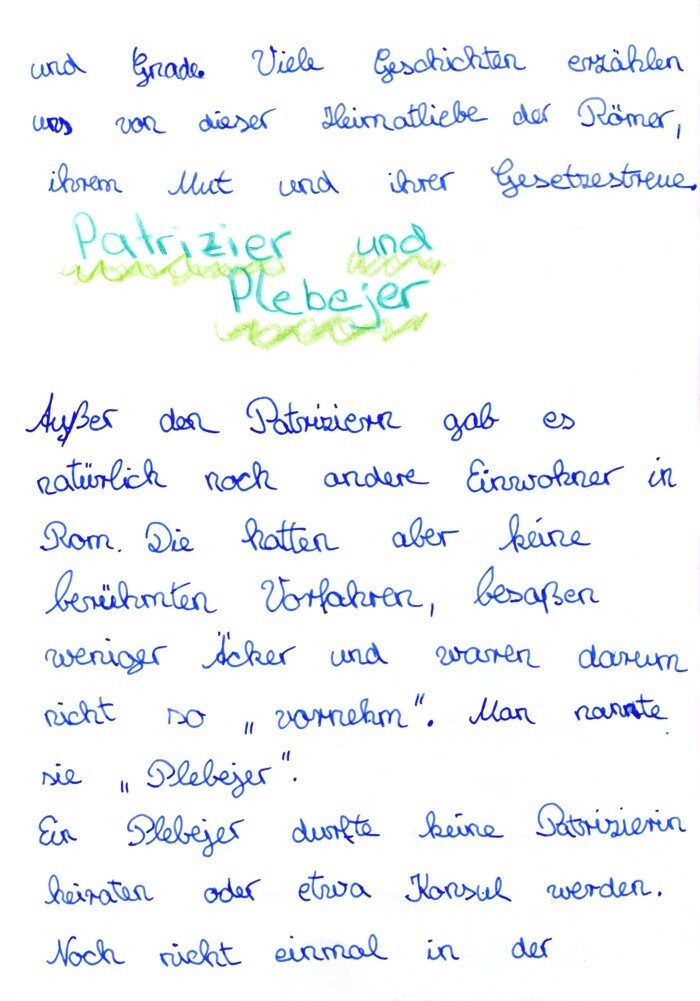 und Grade. Viele Geschichten erzählen
uns von dieser Heimatliebe der Römer,
ihrem Mut und ihrer Gesetzestreue.
Patrizier und
Plebejer
Außer den Patriziern gab es
natürlich noch andere Einwohner in
Rom. Die hatten aber keine
berühmten Vorfahren, besaßen
weniger Äcker und waren darum
nicht so „vornehm“. Man nannte
sie „Plebejer“.
Ein Plebejer durfte keine Patrizierin
heiraten oder etwa Konsul werden.
Noch nicht einmal in der